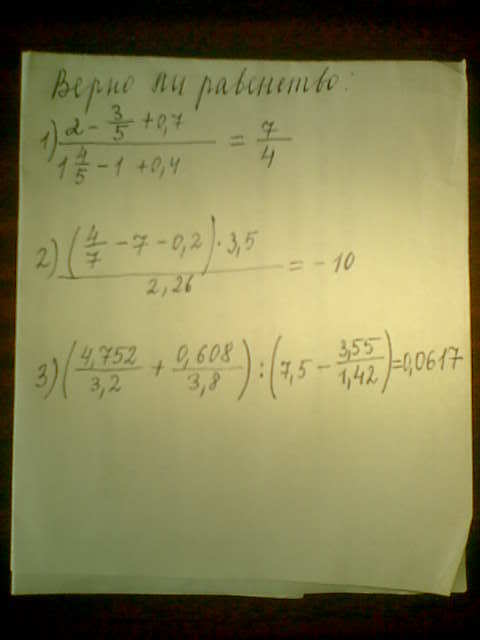 Верно ли равенство:
1) (2 - 3/5 + 0,7)/(1 4/5 - 1 + 0,4) = 7/4
2) ((4/7 - 7 - 0,2) · 3,5)/2,26 = - 10
3) (4,752/3,2 + 0,608/3,8) : (7,5 - 3,55/1,42) = 0,0617